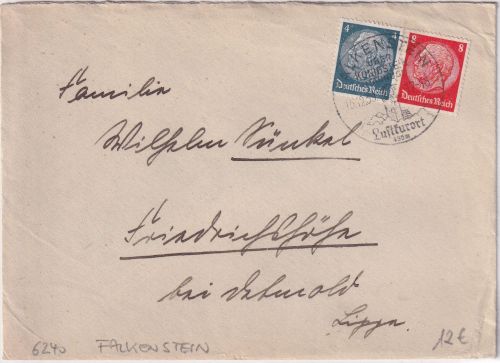 4 8
Deutsches Reich Deutsches Reich
FALKENSTEIN
Luftkurort
Familie
Wilhelm Sünkel
Friedrichshöhe
bei Detmold
Lippe.
6240 FALKENSTEIN 12€